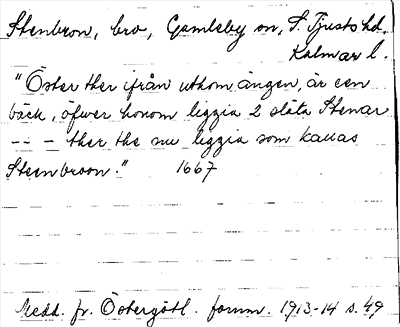 Stenbron, bro, Gamleby sn, S. Tjusts hd.
Kalmar l.
"Öster ther ifrån uthom ängen, är een
bäck, öfwer honom liggia 2 släta Stenar
-- - ther the nu liggia som kallas
Steenbroon." 1667
Medd. fr. Östergötl. fornm. 1913-14 s. 49